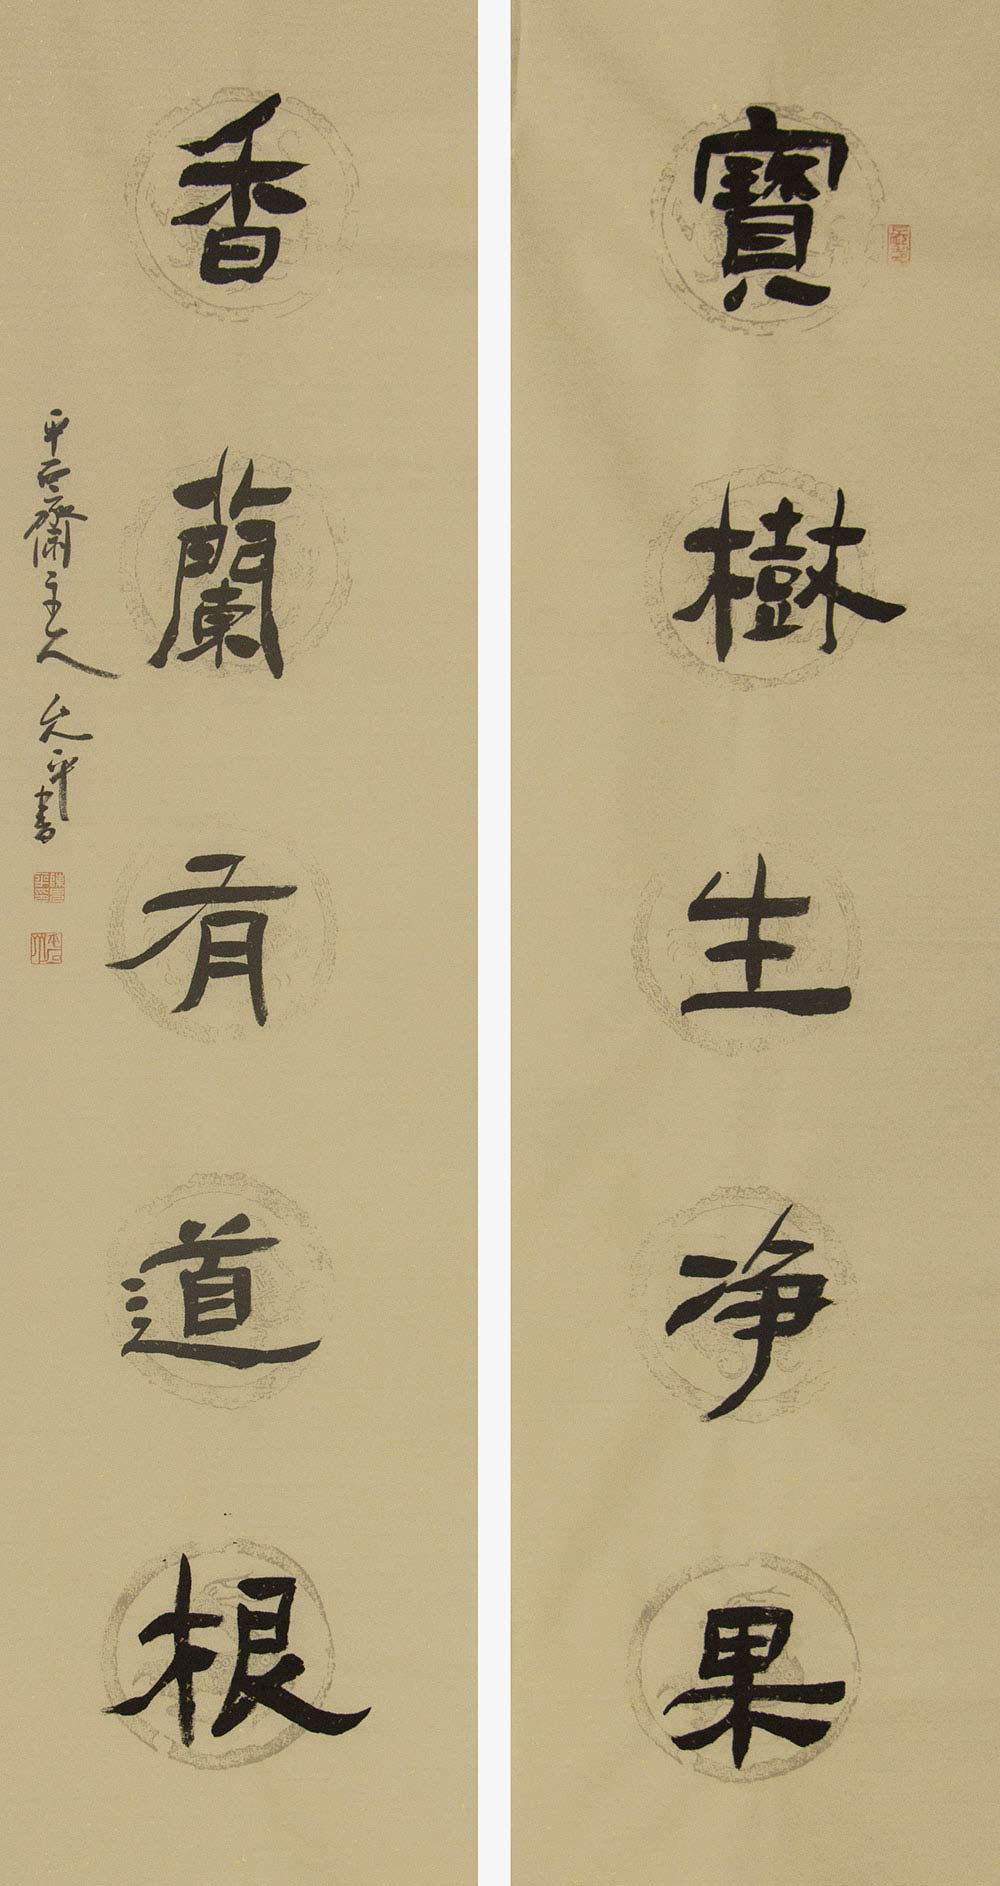 寶樹生净果
香蘭有道根
平齋主人允平書